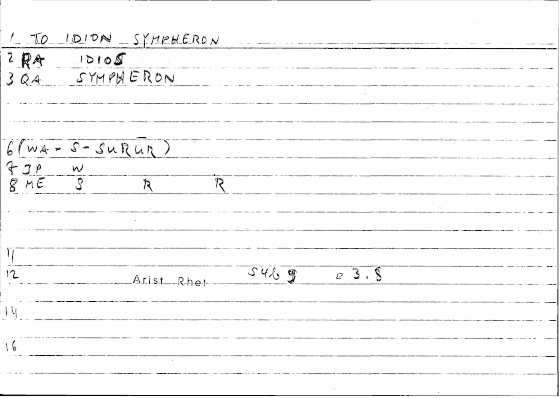 1 TO IDION SYMPHERON
2 RA IDIOS
3 QA SYMPHERON
6 (WA-S-SURUR)
7 JP W
8 ME S R R
11
12 Arist Rhet 54b9 a 3.8
14
16